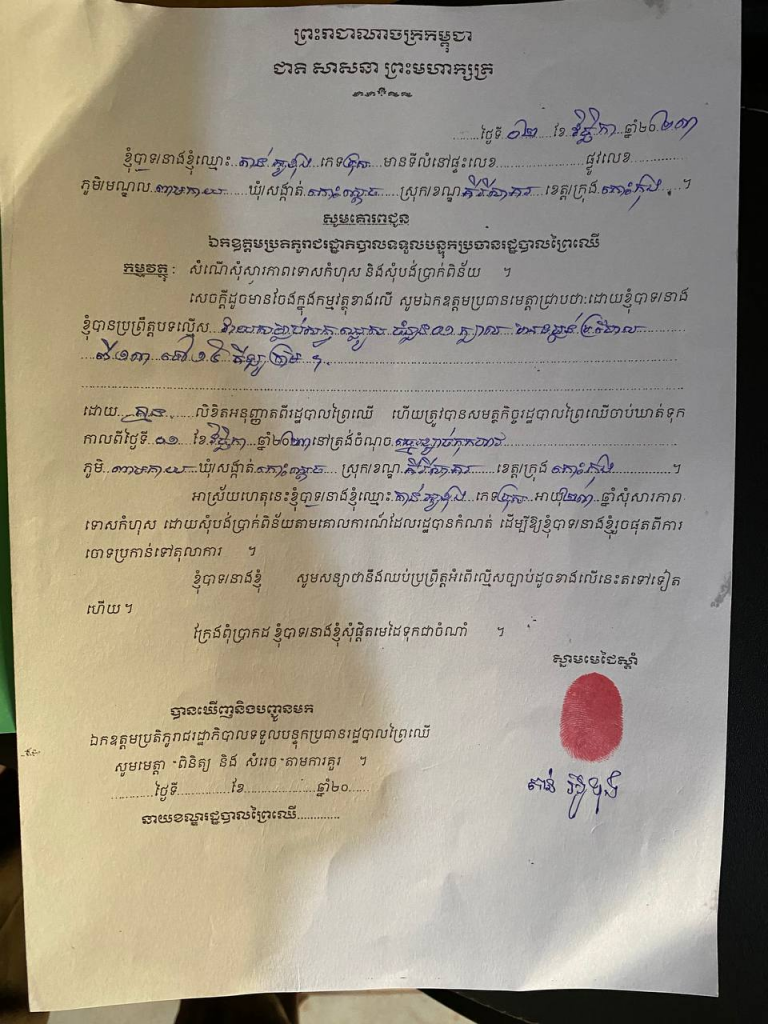 ព្រះរាជាណាចក្រកម្ពុជា
ជាតិ សាសនា ព្រះមហាក្សត្រ
ថ្ងៃទី ០២ ខែ វិច្ឆិកា ឆ្នាំ២០២៣
ខ្ញុំបាទ/នាងខ្ញុំឈ្មោះ តាន់ ភេទ ប្រុស មានទីលំនៅផ្ទះលេខ ផ្លូវលេខ
ភូមិ/មណ្ឌល ពាមកាយ ឃុំ/សង្កាត់ កោះស្ដេច ស្រុក/ខណ្ឌ គីរីសាគរ ខេត្ត/ក្រុង កោះកុង ។
សូមគោរពជូន
ឯកឧត្តមប្រតិភូរាជរដ្ឋាភិបាលទទួលបន្ទុកប្រធានរដ្ឋបាលព្រៃឈើ
កម្មវត្ថុ : សំណើសុំសារភាពទោសកំហុស និងសុំបង់ប្រាក់ពិន័យ ។
សេចក្ដីដូចមានចែងក្នុងកម្មវត្ថុខាងលើ សូមឯកឧត្តមប្រធានមេត្តាជ្រាបថា:ដោយខ្ញុំបាទ/នាង
ខ្ញុំបានប្រព្រឹត្តបទល្មើស ចំនួន ០១ ក្បាល
ពី ១៣ ទៅ ១៥ គីឡូក្រាម ។
ដោយ គ្មាន លិខិតអនុញ្ញាតពីរដ្ឋបាលព្រៃឈើ ហើយត្រូវបានសមត្ថកិច្ចរដ្ឋបាលព្រៃឈើចាប់ឃាត់ទុក
កាលពីថ្ងៃទី ០១ ខែ វិច្ឆិកា ឆ្នាំ២០២៣នៅត្រង់ចំណុច
ភូមិ ពាមកាយ ឃុំ/សង្កាត់ កោះស្ដេច ស្រុក/ខណ្ឌ គីរីសាគរ ខេត្ត/ក្រុង កោះកុង ។
អាស្រ័យហេតុនេះខ្ញុំបាទ/នាងខ្ញុំឈ្មោះ តាន់ ភេទ ប្រុស អាយុ ២៣ ឆ្នាំសុំសារភាព
ទោសកំហុស ដោយសុំបង់ប្រាក់ពិន័យតាមគោលការណ៍ដែលរដ្ឋបានកំណត់ ដើម្បីឱ្យខ្ញុំបាទ/នាងខ្ញុំរួចផុតពីការ
ចោទប្រកាន់ទៅតុលាការ ។
ខ្ញុំបាទ/នាងខ្ញុំ សូមសន្យាថានឹងឈប់ប្រព្រឹត្តអំពើល្មើសច្បាប់ដូចខាងលើនេះតទៅទៀត
ហើយ ។
ក្រែងពុំប្រាកដ ខ្ញុំបាទ/នាងខ្ញុំសុំផ្ដិតមេដៃទុកជាចំណាំ ។
ស្នាមមេដៃស្ដាំ
បានឃើញនិងបញ្ជូនមក
ឯកឧត្តមប្រតិភូរាជរដ្ឋាភិបាលទទួលបន្ទុកប្រធានរដ្ឋបាលព្រៃឈើ
សូមមេត្តា "ពិនិត្យ និង សំរេច"តាមការគួរ ។
ថ្ងៃទី ខែ ឆ្នាំ២០
នាយខណ្ឌរដ្ឋបាលព្រៃឈើ
តាន់